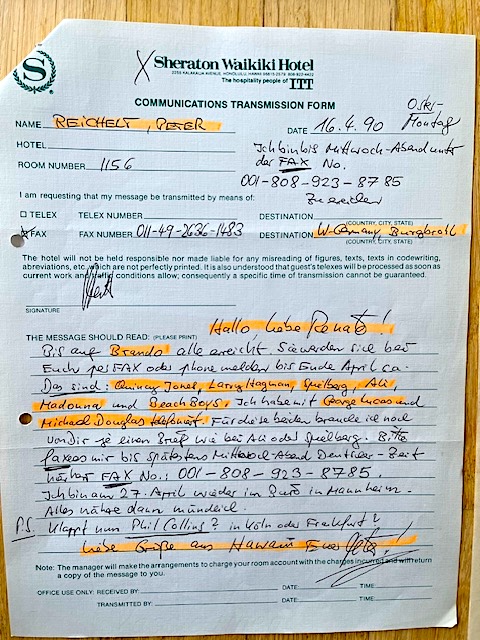 S
X Sheraton Waikiki Hotel
2255 KALAKAUA AVENUE, HONOLULU, HAWAII 96815-2579 808-922-4422
The hospitality people of ITT
COMMUNICATIONS TRANSMISSION FORM
Oster-
Montag
NAME REICHELT, PETER DATE 16.4.90
HOTEL Ich bin bis Mittwoch-Abend unter
der FAX No.
ROOM NUMBER 1156
001-808-923-8785
zu erreichen
I am requesting that my message be transmitted by means of:
TELEX TELEX NUMBER DESTINATION
(COUNTRY, CITY, STATE)
FAX FAX NUMBER 011-49-2636-1483 DESTINATION W-Germany, Burgbrohl
(COUNTRY, CITY, STATE)
The hotel will not be held responsible nor made liable for any misreading of figures, texts, texts in codewriting,
abreviations, etc. which are not perfectly printed. It is also understood that guest's telexes will be processed as soon as
current work and traffic conditions allow; consequently a specific time of transmission cannot be guaranteed.
SIGNATURE
Hallo, liebe Renate!
THE MESSAGE SHOULD READ: (PLEASE PRINT)
Bis auf Brando alle erreicht. Sie werden sich bei
Euch per FAX oder phone melden bis Ende April ca.
Das sind: Quincy Jones, Larry Hagman, Spielberg, Ali,
Madonna und Beach Boys. Ich habe mit George Lucas und
Michael Douglas telefoniert. Für diese beiden brauche ich noch
von Dir je einen Brief wie bei Ali oder Spielberg. Bitte
faxen mir bis spätestens Mittwoch-Abend Deutscher-Zeit
FAX No.: 001-808-923-8785.
Ich bin am 27. April wieder im Büro in Mannheim.
Alles nähere dann mündlich.
P.S. Klappt nun Phil Collins? in Köln oder Frankfurt?
Liebe Grüße aus Hawaii Euer Peter!
Note: The manager will make the arrangements to charge your room account with the charges incurred and will return
a copy of the message to you.
OFFICE USE ONLY: RECEIVED BY: DATE: TIME:
TRANSMITTED BY: DATE: TIME: